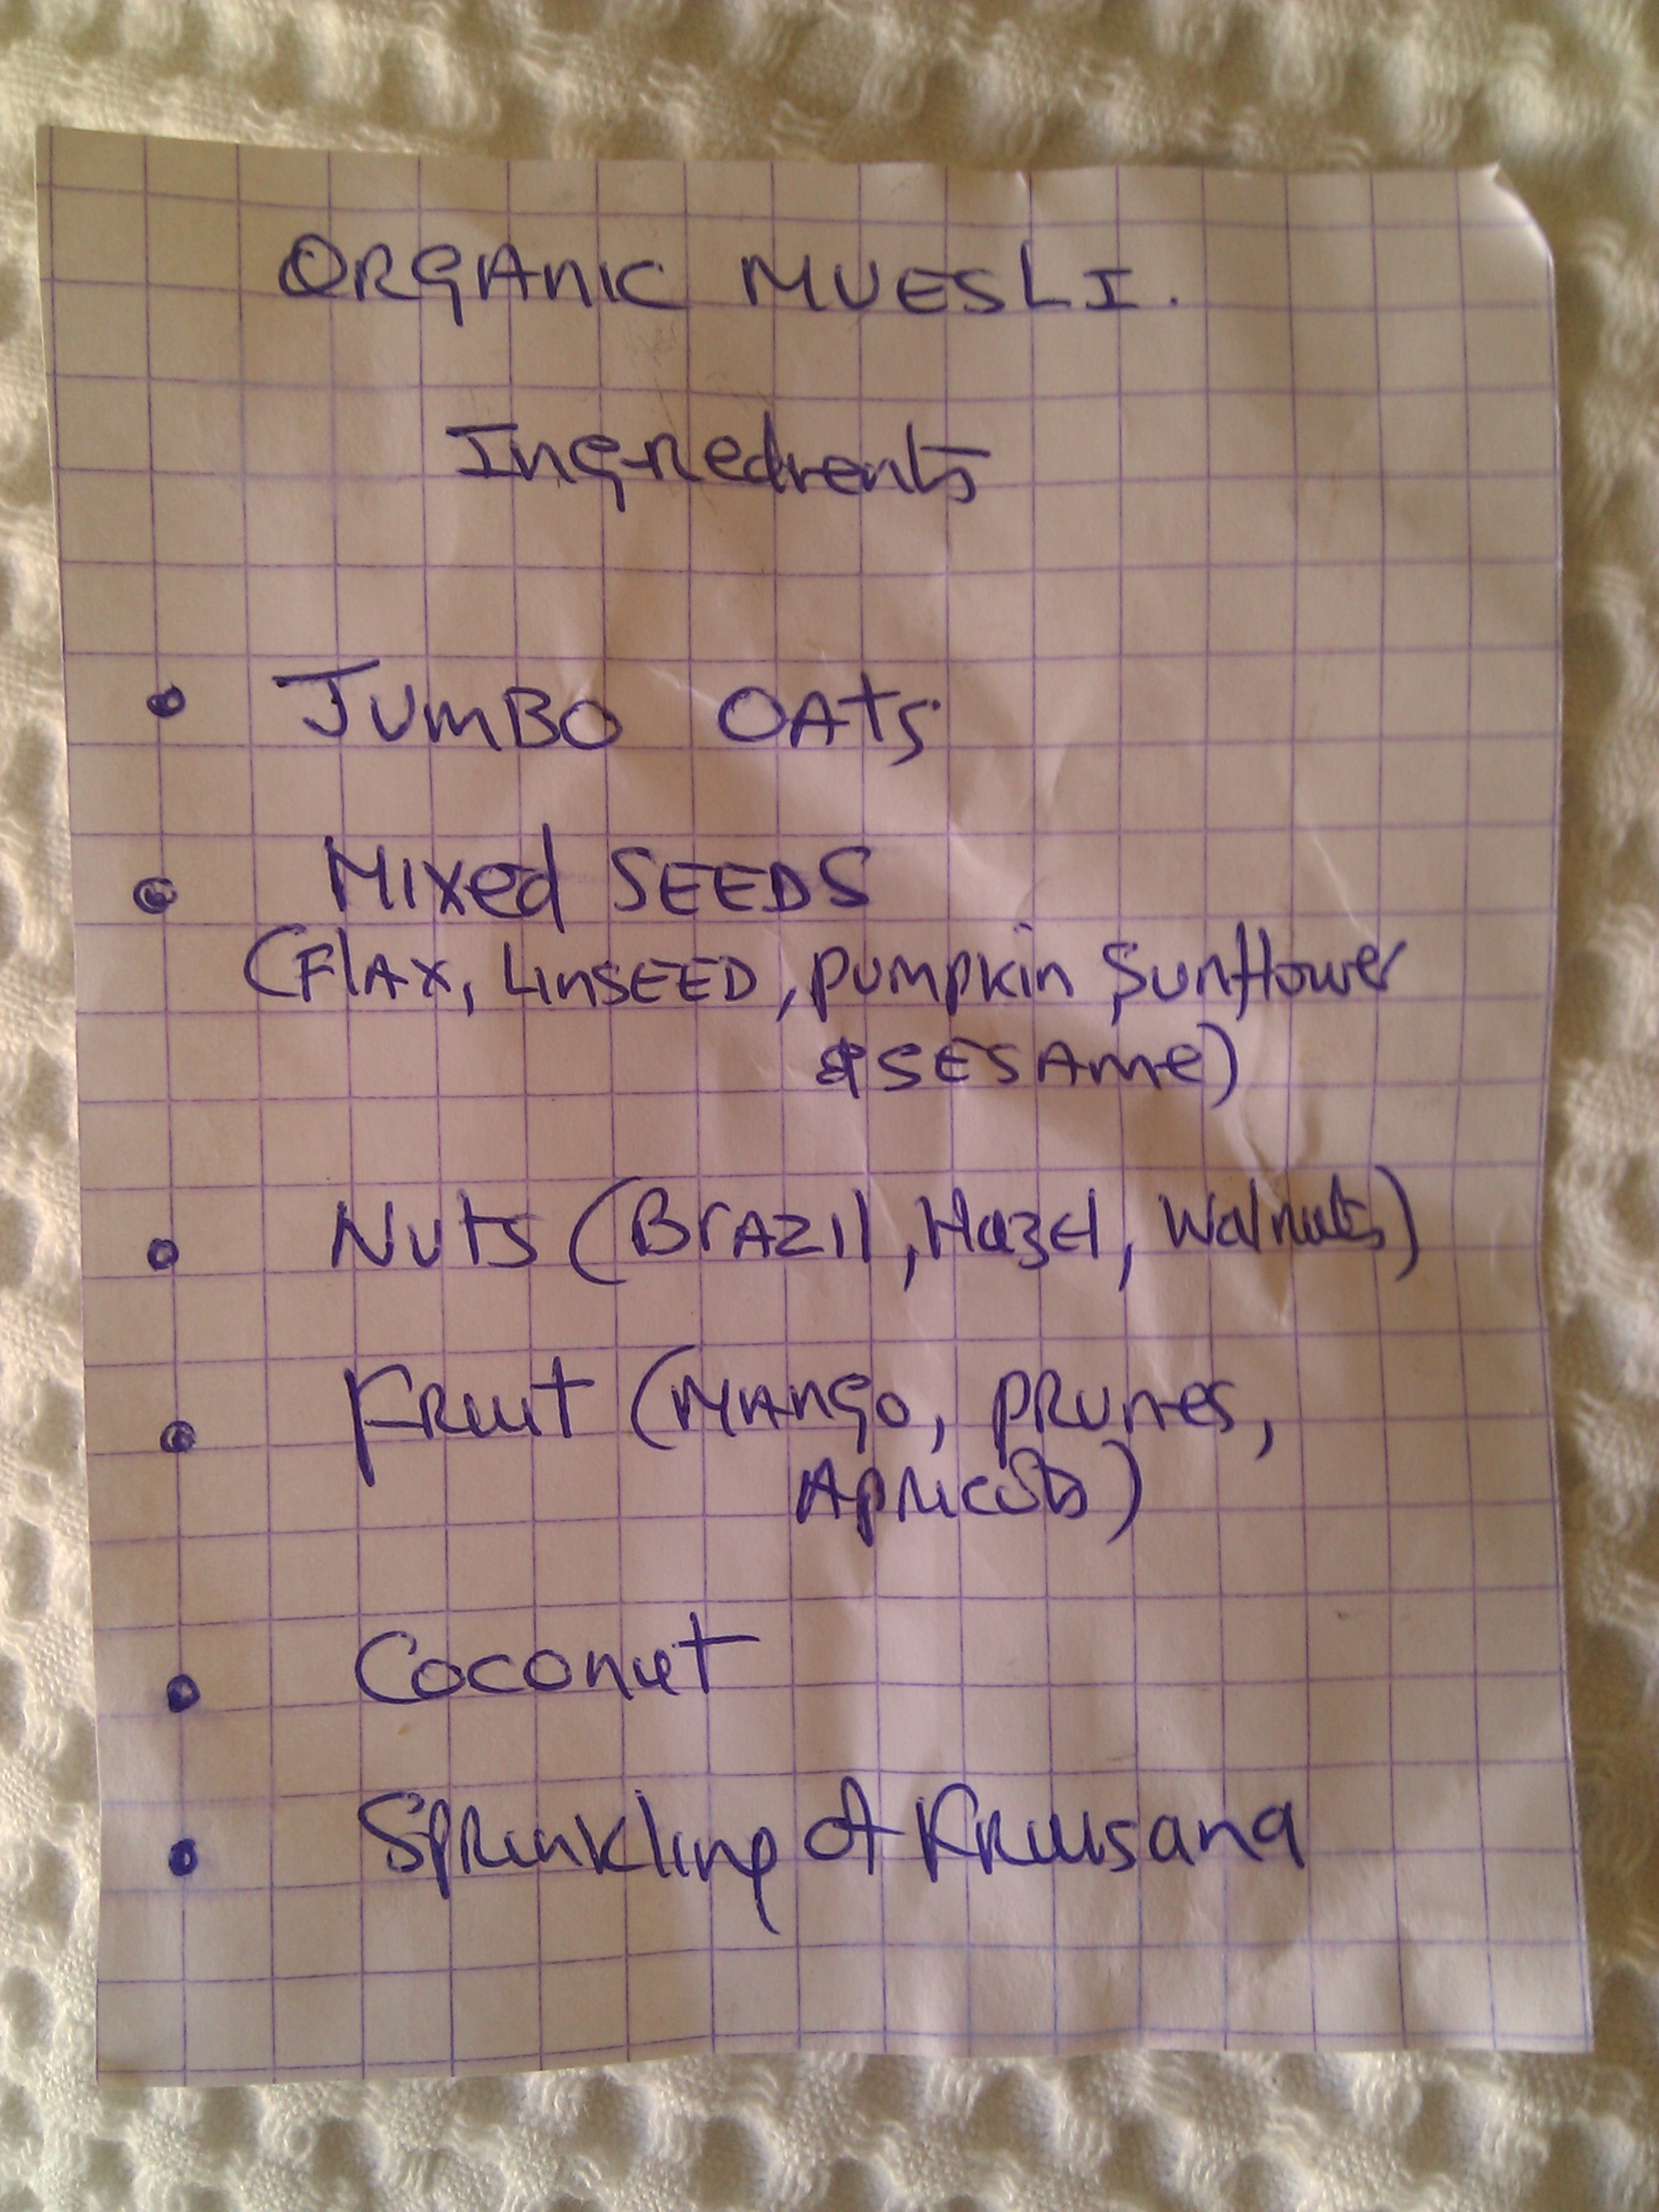 ORGANIC MUESLI.
Ingredients
• JUMBO OATS
• MIXed SEEDS
(FlAX, LINSEED, pumpkin, Sunflower
& SESAme)
• Nuts (BrAZIl, Hazel, Walnuts)
• FRuit (MAngo, pRunes,
ApRicots)
• Coconut
• SpRinkling of